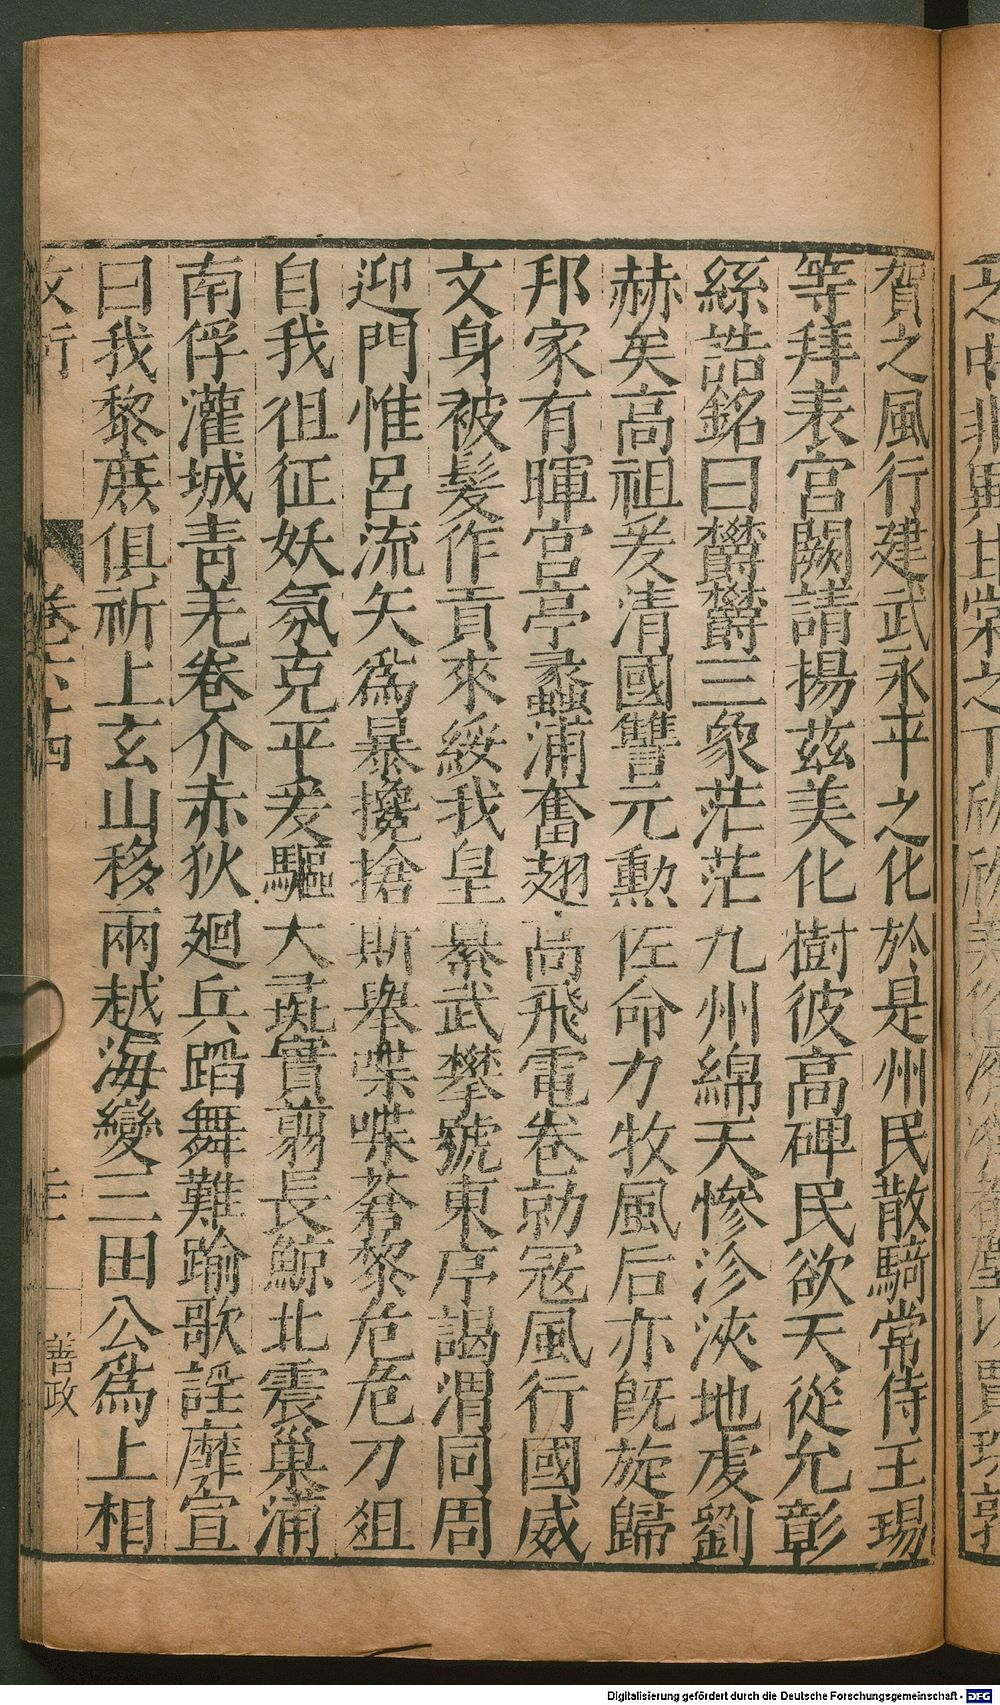 賀之風行建武永平之化於是州民散騎常侍王瑒
等拜表宮闕請揚茲美化樹彼高碑民欲天從允彰
絲誥銘曰鬱鬱三象茫茫九州綿天慘沴浹地虔劉
赫矣高祖爰清國讐元勲佐命力牧風后亦旣旋歸
邦家有暉宮亭蠡浦奮翅高飛電卷勍冦風行國威
文身被髮作貢來綏我皇暴武攀號東序謁渭同周
迎門惟呂流矢爲暴攙搶斯舉喋喋蒼黎危危刀俎
自我徂征妖氛克平爰驅大蒐實翦長鯨北震巢浦
南俘灌城靑羌卷介赤狄廻兵蹈舞難踰歌謡靡宣
曰我黎庶俱祈上玄山移兩越海變三田公爲上相
卷六十四
善政
之中非異甘棠之下欣欣美